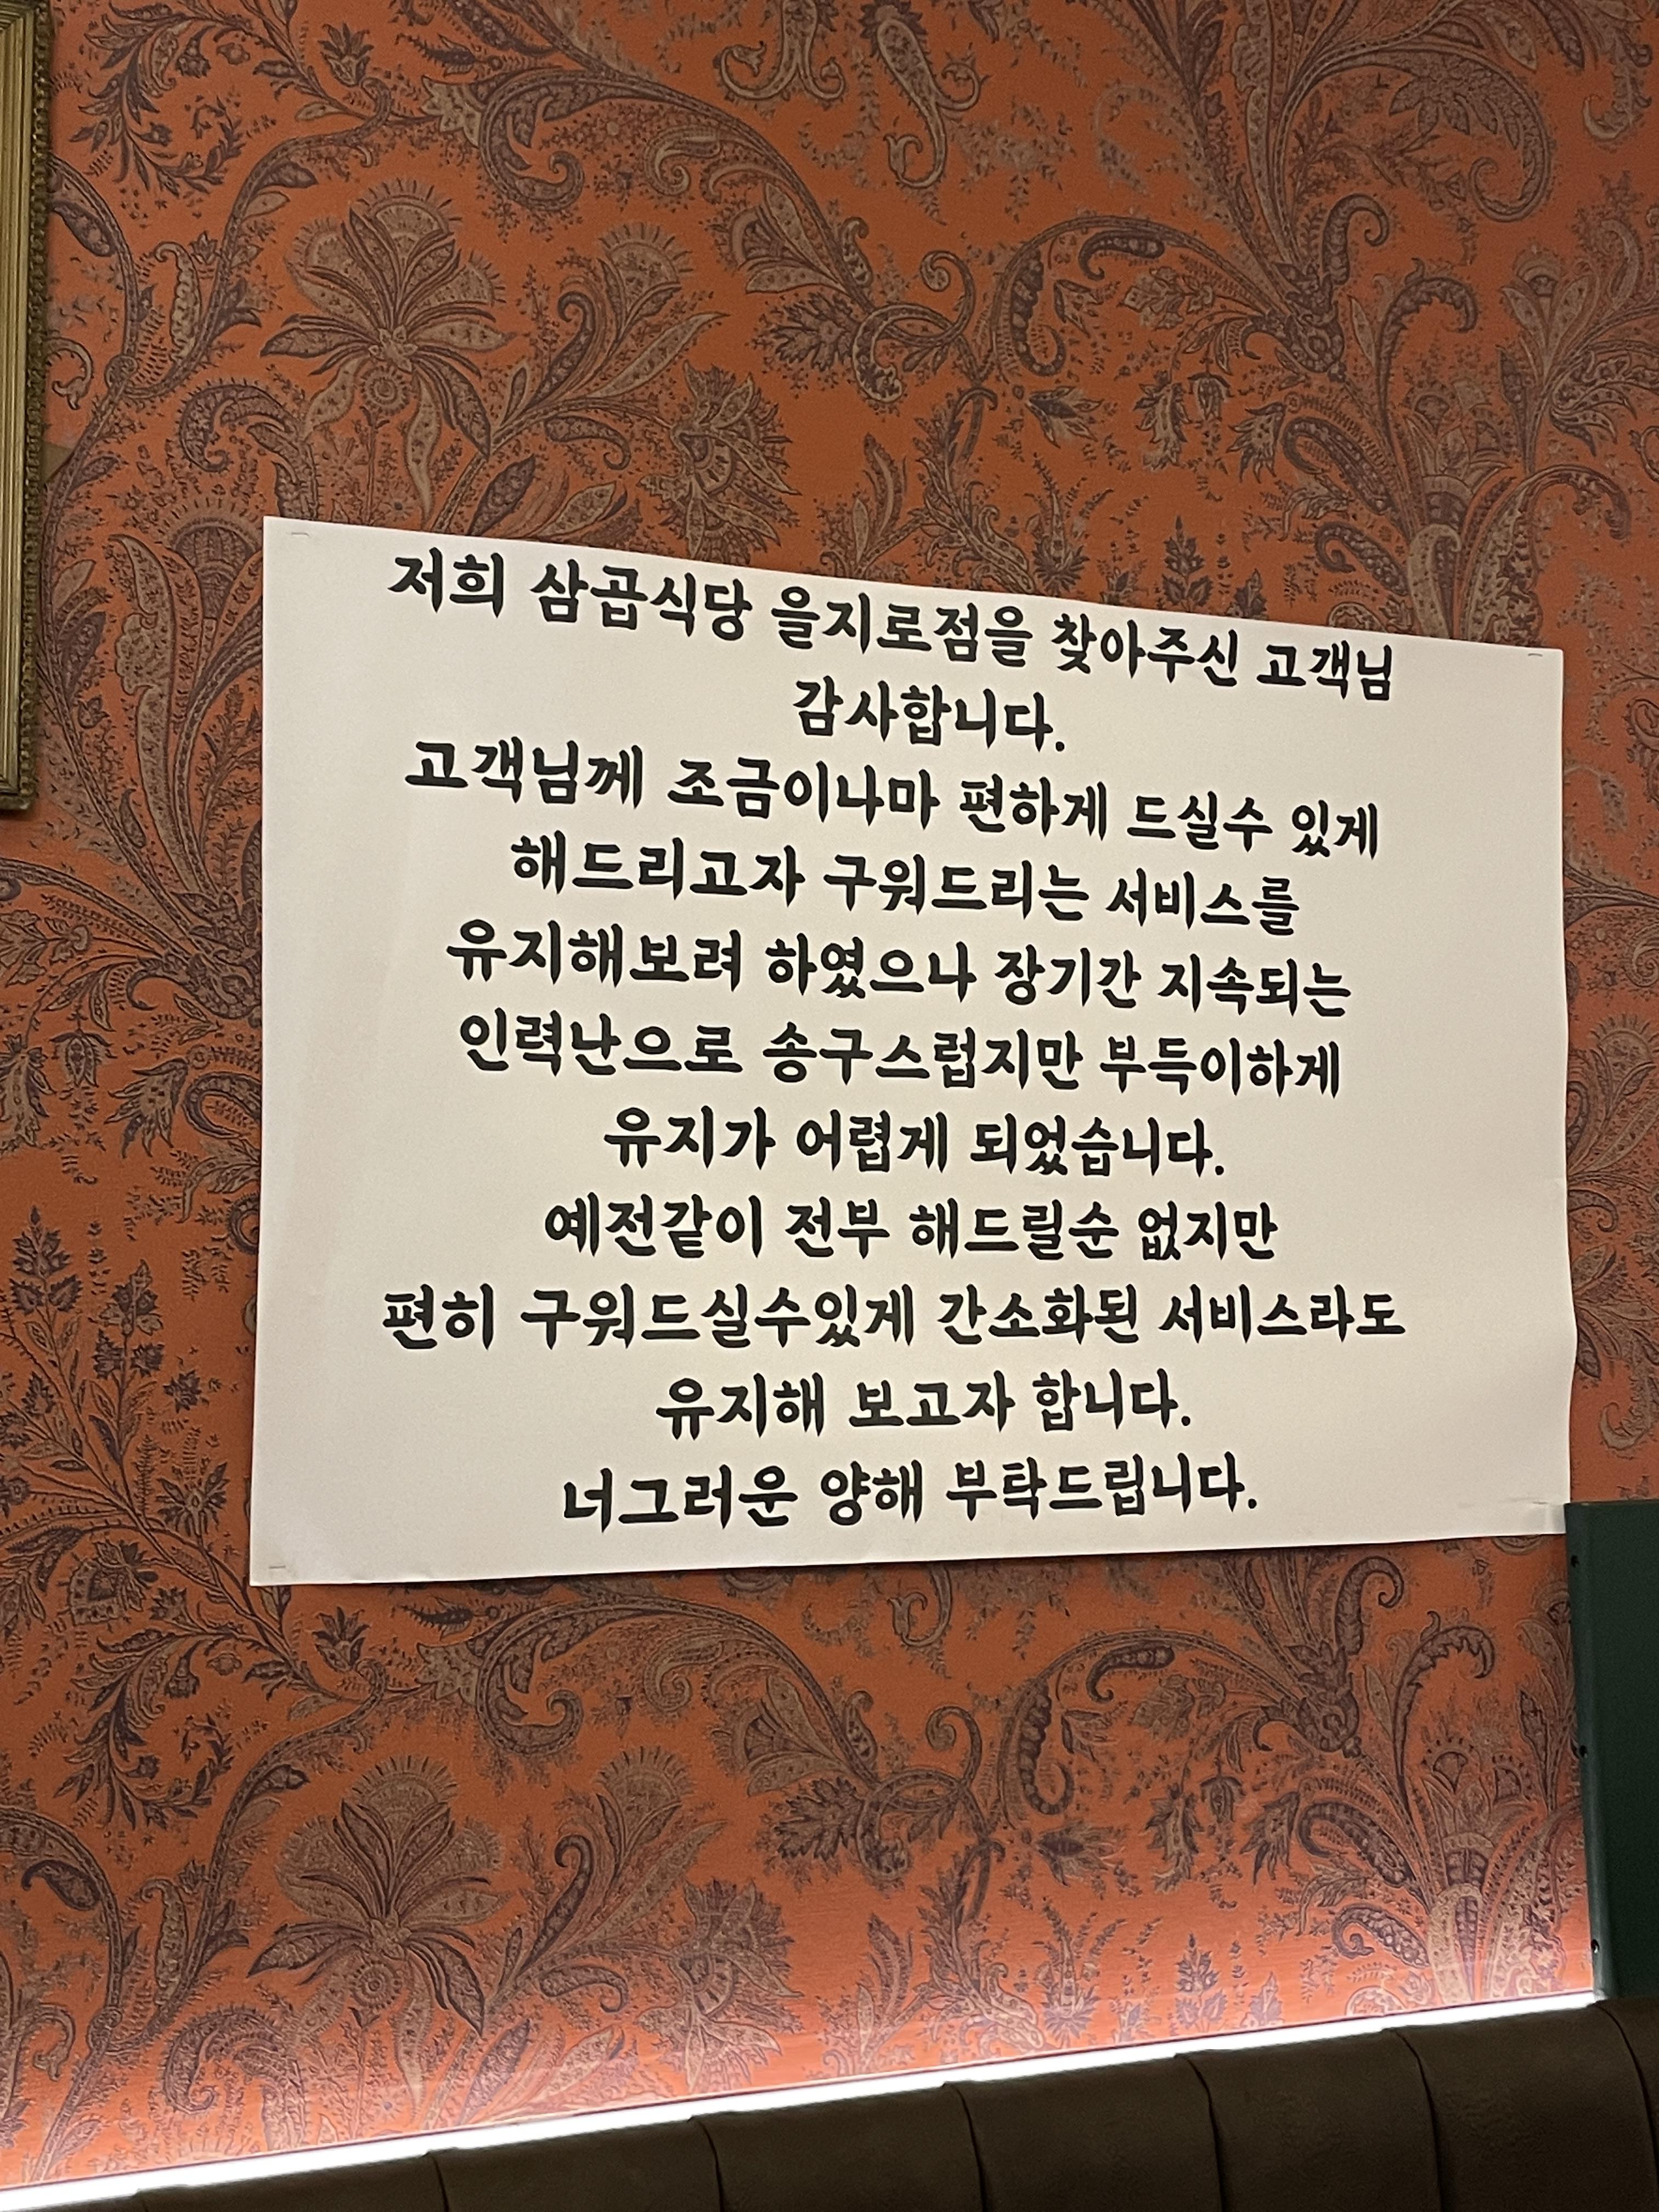 저희 삼곱식당 을지로점을 찾아주신 고객님
감사합니다.
고객님께 조금이나마 편하게 드실수 있게
해드리고자 구워드리는 서비스를
유지해보려 하였으나 장기간 지속되는
인력난으로 송구스럽지만 부득이하게
유지가 어렵게 되었습니다.
예전같이 전부 해드릴순 없지만
편히 구워드실수있게 간소화된 서비스라도
유지해 보고자 합니다.
너그러운 양해 부탁드립니다.